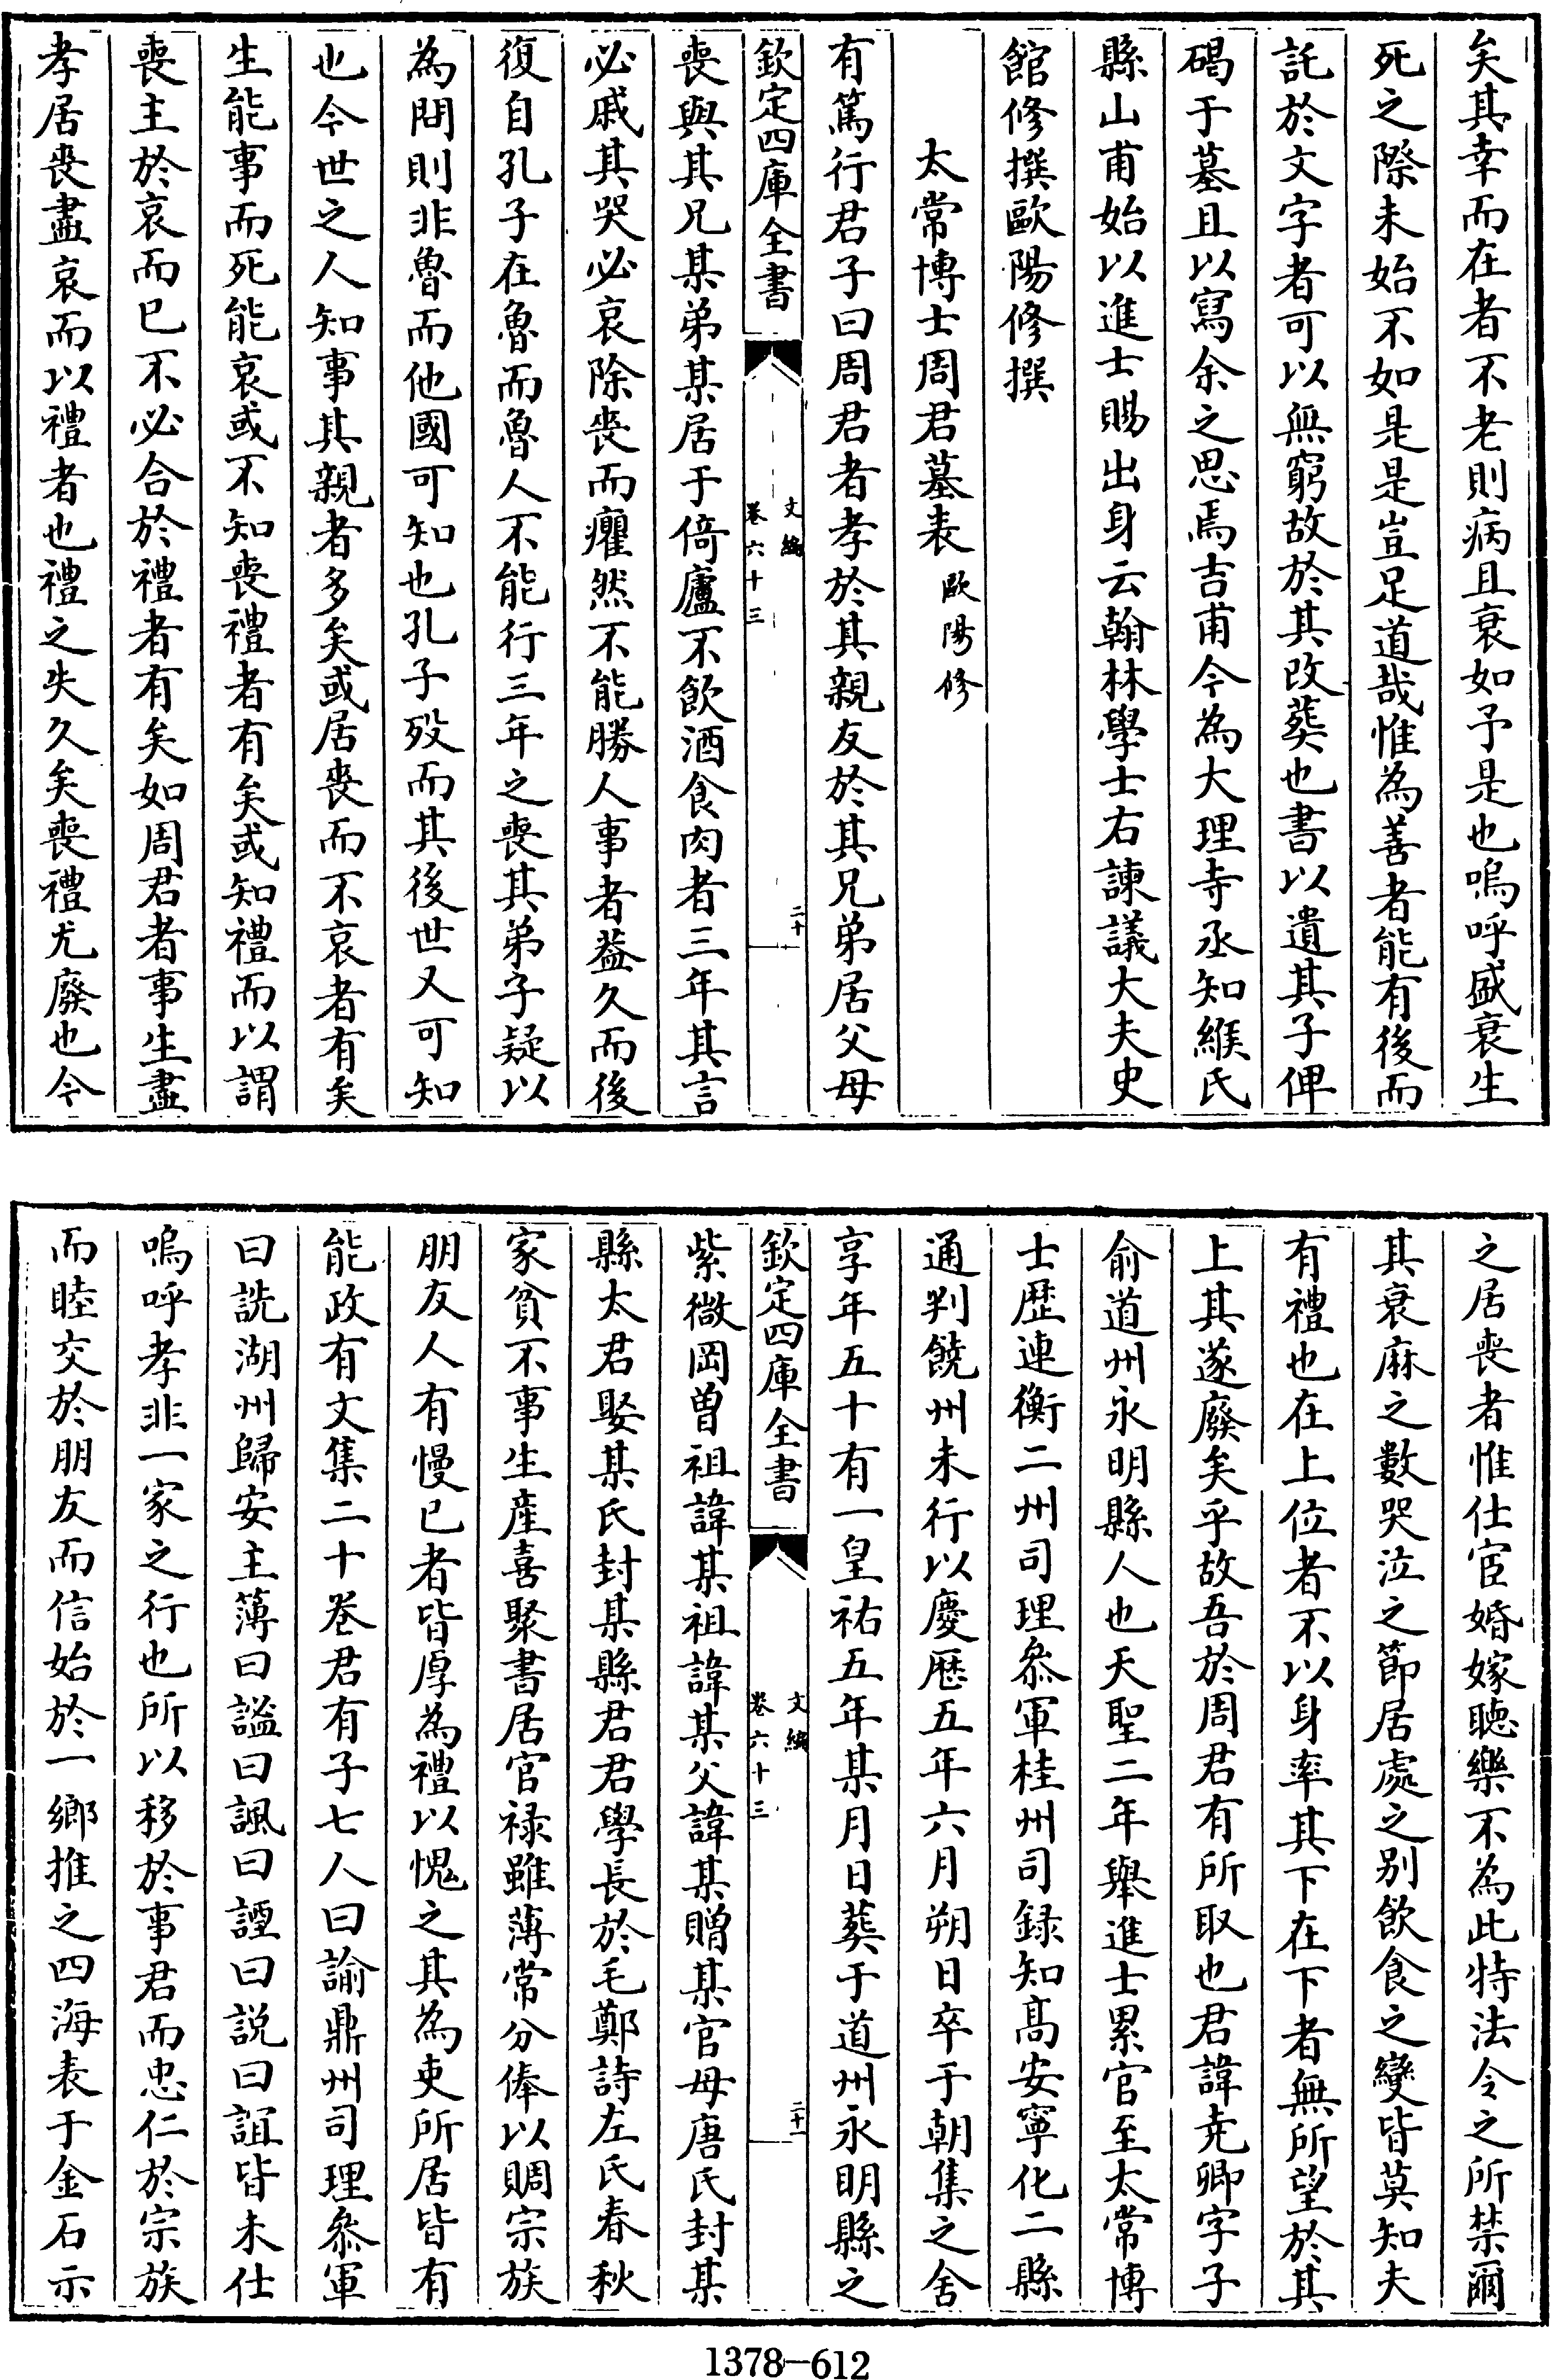 矣其幸而在者不老則病且衰如予是也嗚呼盛衰生
死之際未始不如是是豈足道哉惟為善者能有後而
託於文字者可以無窮故於其改葬也書以遺其子俾
碣于墓且以寫余之思焉吉甫今為大理寺丞知緱氏
縣山甫始以進士賜出身云翰林學士右諫議大夫史
館修撰歐陽修撰
太常博士周君墓表 歐陽修
有篤行君子曰周君者孝於其親友於其兄弟居父母
欽定四庫全書 文編 卷六十三 二十
喪與其兄某弟某居于倚廬不飲酒食肉者三年其言
必戚其哭必哀除喪而癯然不能勝人事者葢久而後
復自孔子在魯而魯人不能行三年之喪其弟子疑以
為問則非魯而他國可知也孔子歿而其後世又可知
也今世之人知事其親者多矣或居喪而不哀者有矣
生能事而死能哀或不知喪禮者有矣或知禮而以謂
喪主於哀而已不必合於禮者有矣如周君者事生盡
孝居喪盡哀而以禮者也禮之失久矣喪禮尤廢也今
之居喪者惟仕宦婚嫁聽樂不為此特法令之所禁爾
其衰麻之數哭泣之節居處之别飲食之變皆莫知夫
有禮也在上位者不以身率其下在下者無所望於其
上其遂廢矣乎故吾於周君有所取也君諱堯卿字子
俞道州永明縣人也天聖二年舉進士累官至太常博
士歴連衡二州司理叅軍桂州司録知髙安寧化二縣
通判饒州未行以慶歴五年六月朔日卒于朝集之舍
享年五十有一皇祐五年某月日葬于道州永明縣之
欽定四庫全書 文編 卷六十三 二十一
紫微岡曽祖諱某祖諱某父諱某贈某官母唐氏封某
縣太君娶某氏封某縣君君學長於毛鄭詩左氏春秋
家貧不事生産喜聚書居官禄雖薄常分俸以賙宗族
朋友人有慢已者皆厚為禮以愧之其為吏所居皆有
能政有文集二十卷君有子七人曰諭鼎州司理叅軍
曰詵湖州歸安主薄曰謐曰諷曰諲曰説曰誼皆未仕
嗚呼孝非一家之行也所以移於事君而忠仁於宗族
而睦交於朋友而信始於一鄉推之四海表于金石示
1378-612